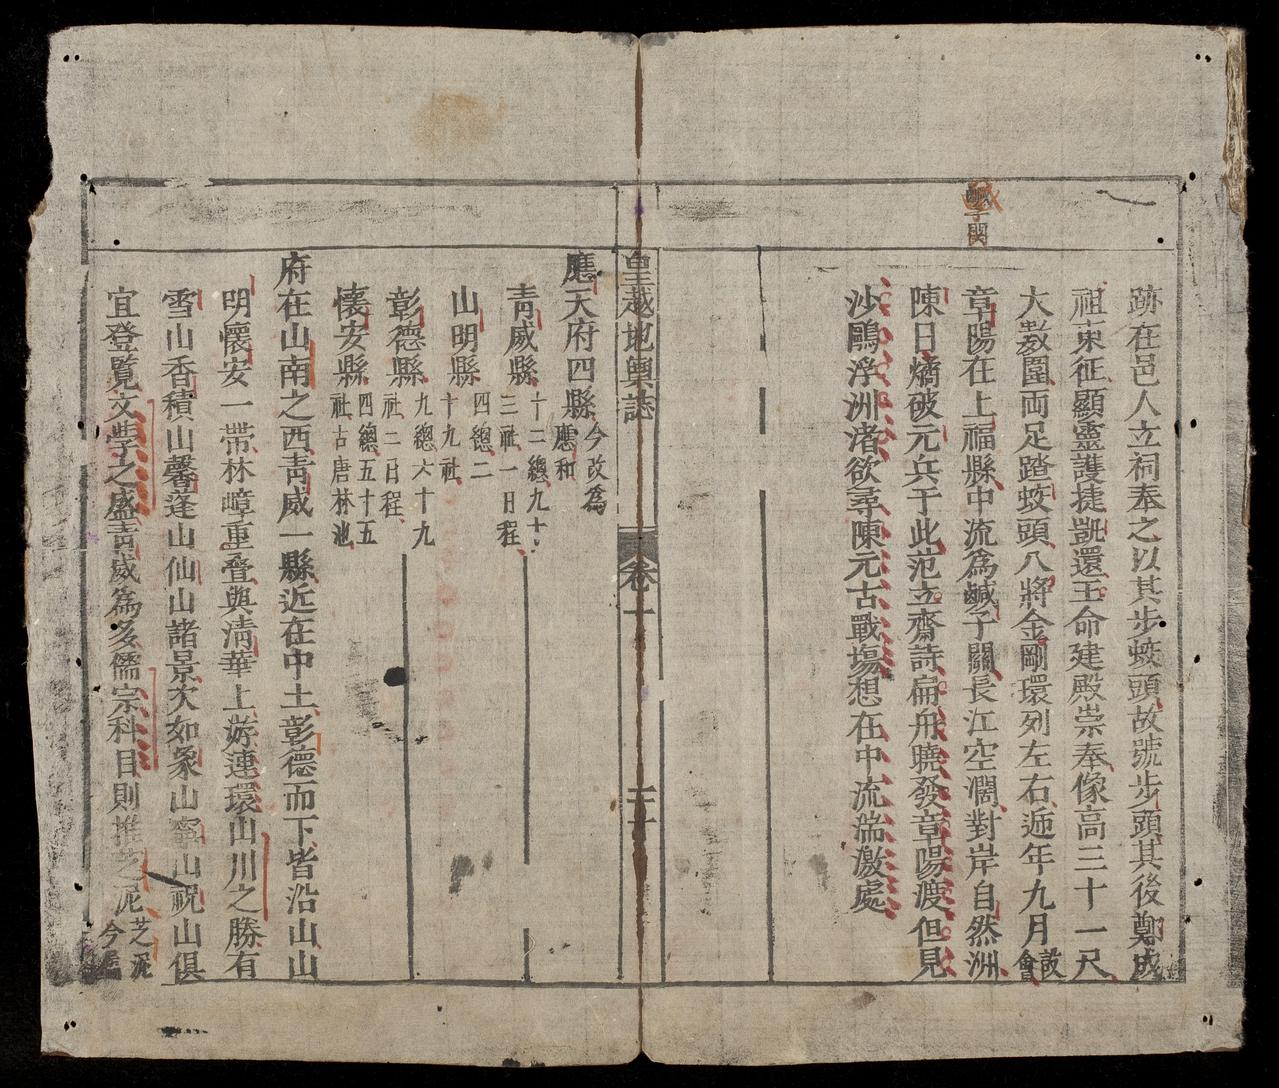 鹹子関
跡在邑人立祠奉之以其步蛟頭故號步頭其後鄭成
祖東征顯靈護捷凱還王命建殿崇奉像高三十一尺
大數圍両足踏蛟頭八將金剛環列左右遞年九月設會
章陽在上福縣中流為鹹子關長江空濶對岸自然洲
陳日燏破元兵于此范立齋詩扁舟曉發章陽渡但見
沙鷗浮洲渚欲尋陳元古戰塲想在中流湍激處
皇越地輿誌 卷一 二十
應天府四縣今改為應和
青威縣十二總九十三社一日程
山明縣四總二十九社
彰德縣九總六十九社二日程
懷安縣四總五十五社古唐林池
府在山南之西青威一縣近在中土彰德而下皆沿山山
明懷安一帶林嶂重疊與清華上游連環山川之勝有
雪山香積山馨蓬山仙山諸景次如象山寧山祝山俱
宜登覧文學之盛青威為多儒宗科目則推芝泥芝泥今